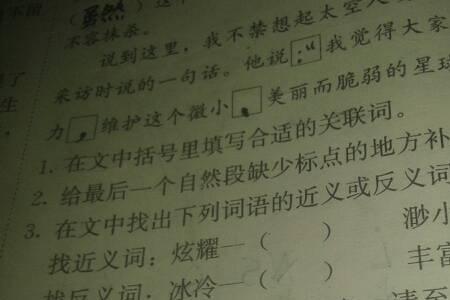 （虽然）这
不容抹杀。
说到这里，我不禁想起太空人
采访时说的一句话。他说：“我觉得大家
力，维护这个微小、美丽而脆弱的星球
1. 在文中括号里填写合适的关联词。
2. 给最后一个自然段缺少标点的地方补
3. 在文中找出下列词语的近义或反义词
找近义词：炫耀—（　　） 渺小
找反义词：冰冷—（　　） 丰富